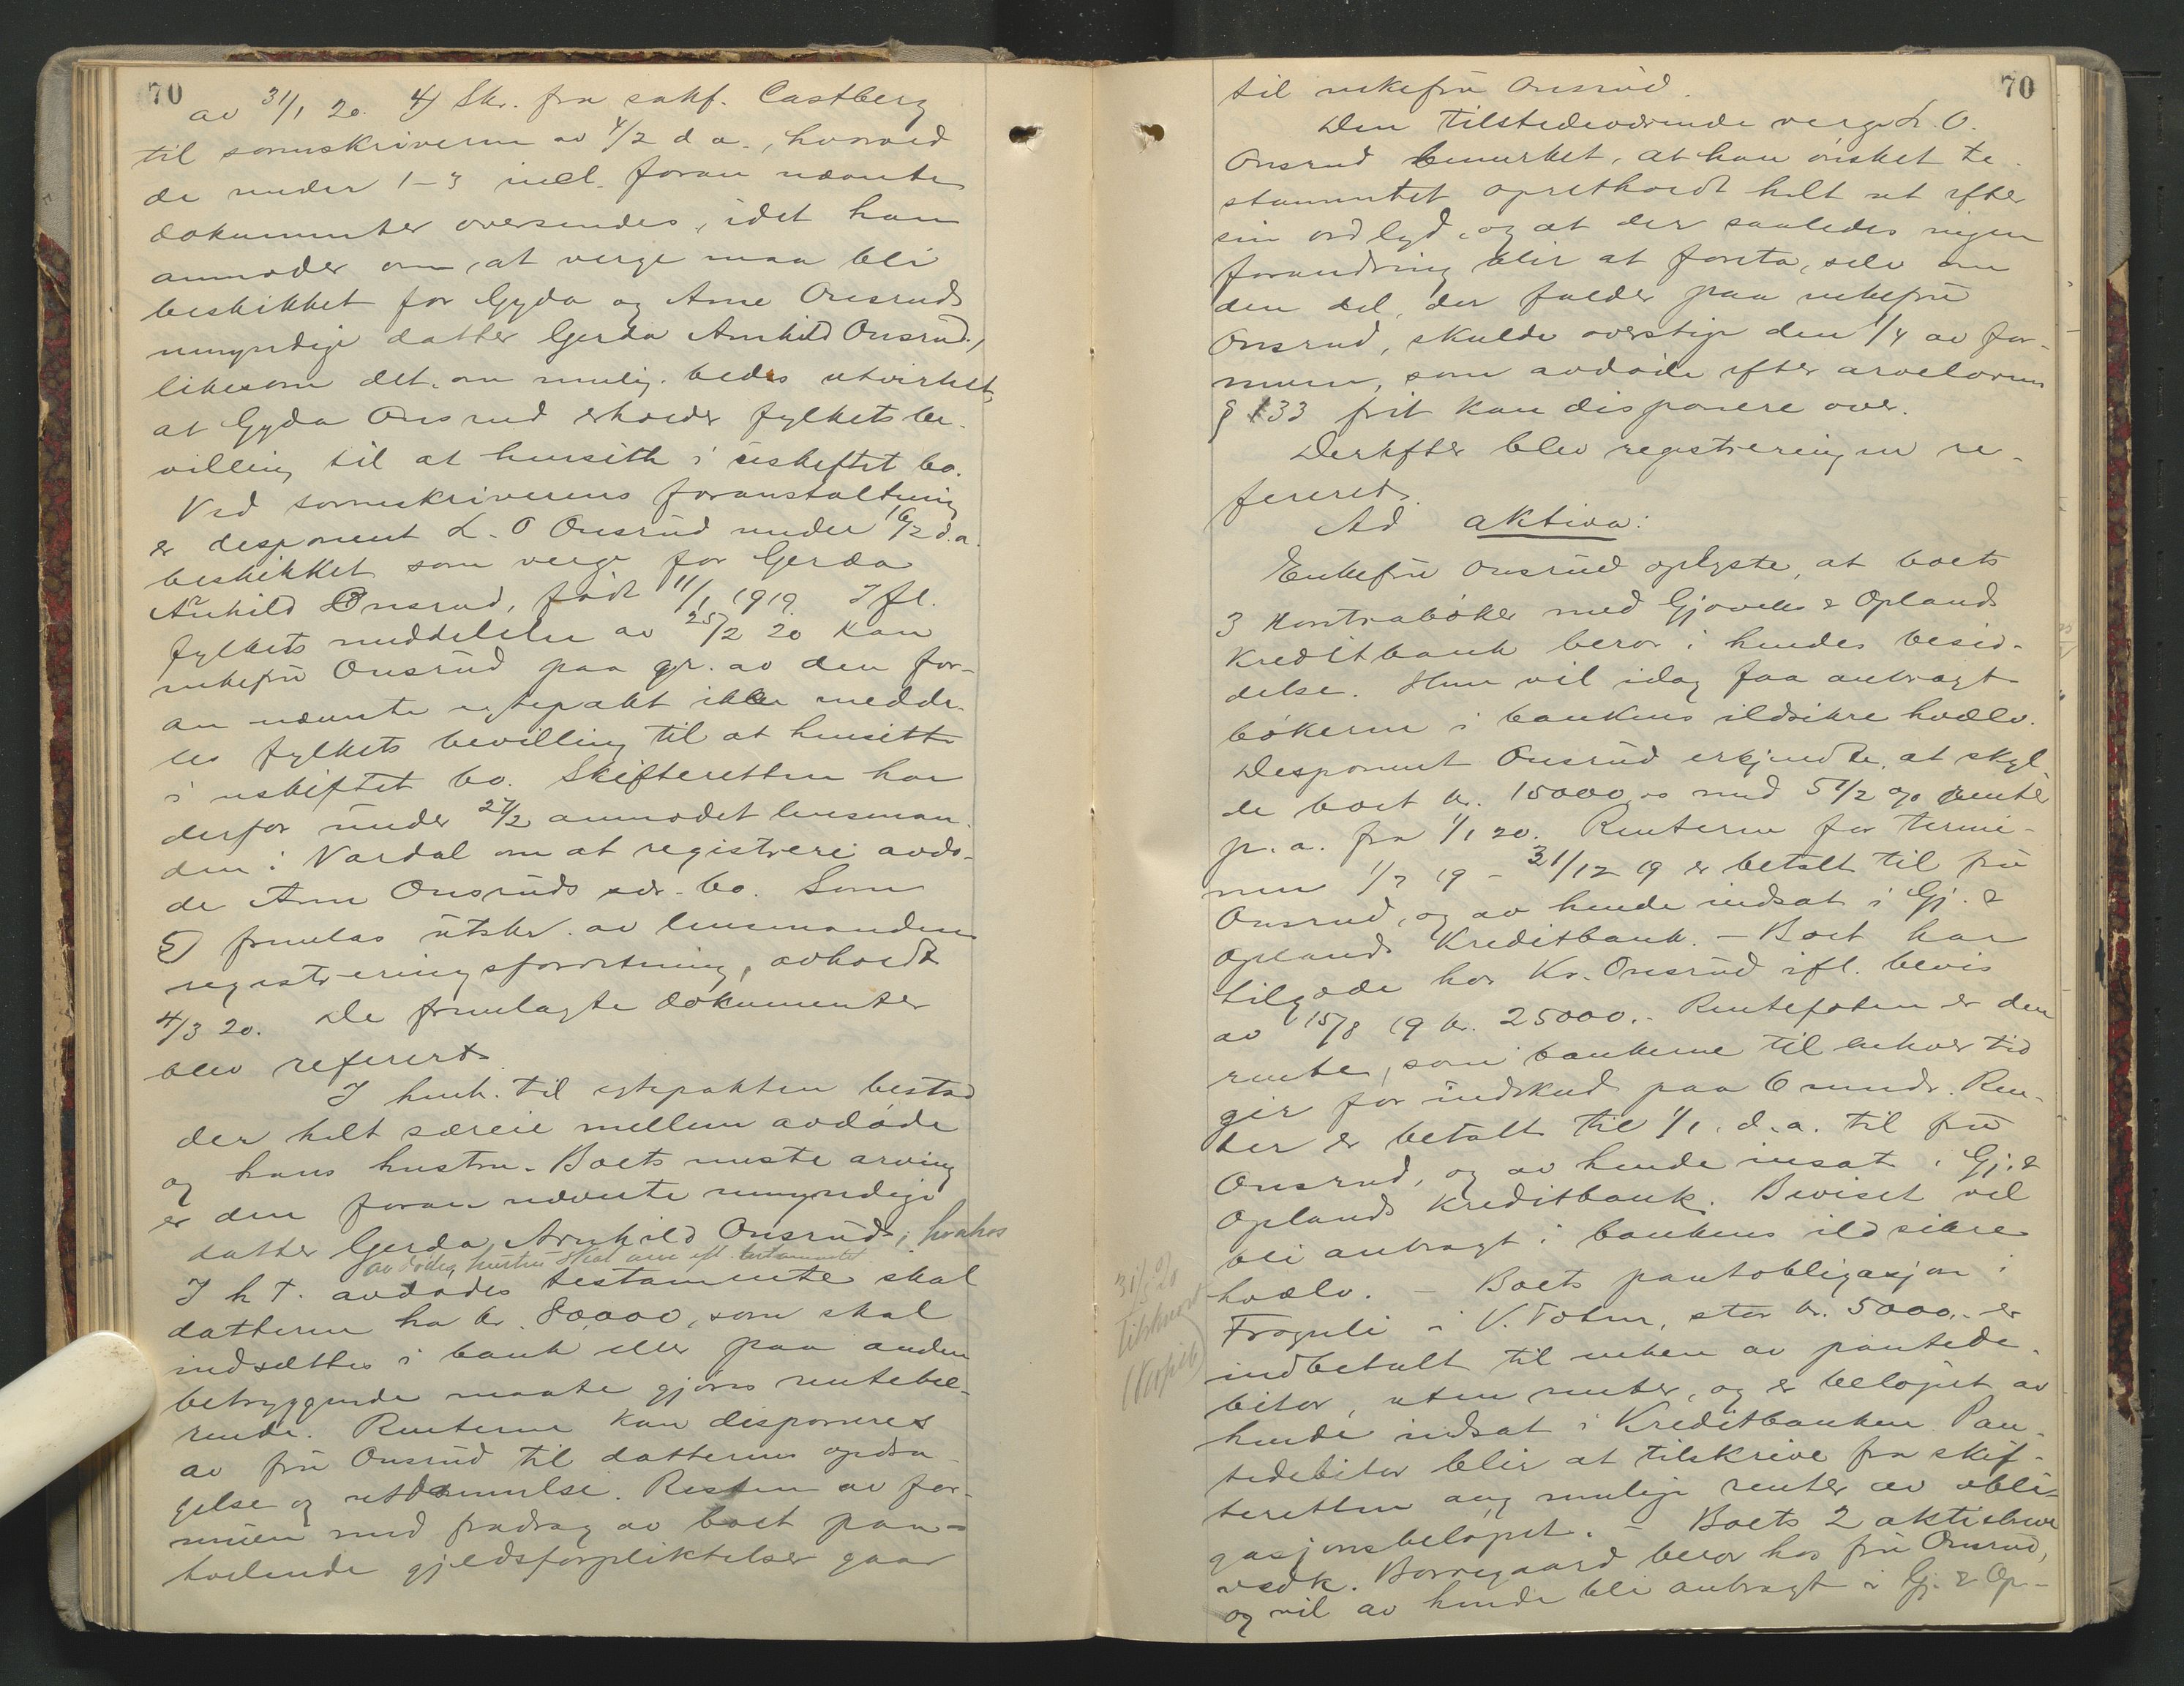 70
av 31/1 20. 4) Skr. fra sakf. Castberg
til sorenskriveren av 4/2 d. a., hvorved
de under 1-3 incl. foran nævnte
dokumenter oversendes, idet han
anmoder om, at verge maa bli
beskikket for Gyda og Arne Onsruds
umyndige datter Gerda Arnhild Onsrud,
likesom det om mulig bedes utvirket,
at Gyda Onsrud erholder fylkets be-
villing til at hensitte i uskiftet bo.
Ved sorenskriverens foranstaltning
er disponent L. O Onsrud under 16/2 d.a.
beskikket som verge for Gerda
Arnhild Onsrud, født 11/1 1919. Ifl.
fylkets meddelelse av 25/2 20 kan
enkefru Onsrud paa gr. av den for-
an nævnte egtepakt ikke medde-
les fylkets bevilling til at hensitte
i uskiftet bo. Skifteretten har
derfor under 27/2 anmodet lensman-
den i Vardal om at registrere avdø-
de Arne Onsruds sær-bo. Som
5) fremlas utskr. av lensmandens
registreringsforretning, avholdt
4/3 20. De fremlagte dokumenter
blev referert.
I henh. til egtepakten bestod
der helt særeie mellem avdøde
og hans hustru. Boets eneste arving
er den foran nævnte umyndige
datter Gerda Arnhild Onsrud; hvorhos
avdødes hustru skal arve efl. testamentet
I h t. avdødes testamente skal
datteren ha kr. 80,000, som skal
indsættes i bank eller paa anden
betryggende maate gjøres rentebæ-
rende. Renterne kan disponeres
av fru Onsrud til datterens opdra-
gelse og utdannelse. Resten av for-
muen med fradrag av boet paa-
hvilende gjeldsforpliktelser gaar
70
til enkefru Onsrud.
Den tilstedeværende verge L. O.
Onsrud bemerket, at han ønsket te-
stamentet oprethordt helt ut efter
sin ordlyd, og at der saaledes ingen
forandring blir at foreta, selv om
den del, der falder paa enkefru
Onsrud, skulde overstige den 1/4 av for-
muen, som avdøde efter arvelovens
§ 33 frit kan disponere over.
Derefter blev registreringen re-
fereret.
Ad aktiva:
Enkefru Onsrud oplyste, at boets
3 kontrabøker med Gjøvik & Oplands
Kreditbank beror i hendes besid-
delse. Hun vil idag faa anbragt
bøkerne i bankens ildsikre hvælv.
Disponent Onsrud erkjendte, at skyl-
de boet kr. 15000,00 med 5 1/2 % renter
p. a. fra 1/1 20. Renterne for termi-
nen 1/7 19 - 31/12 19 er betalt til fru
Onsrud, og av hende indsat i Gj. &
Oplands Kreditbank. – Boet har
tilgode hos Kr. Onsrud ifl. bevis
av 15/8 19 kr. 25000.- Rentefoten er den
rente, som bankerne til enhver tid
gir for indskud paa 6 mndr. Ren-
ter er betalt til 1/1. d. a. til fru
Onsrud, og av hende insat i Gj. &
Oplands Kreditbank. Beviset vil
bli anbragt i bankens ildsikre
hvælv. – Boets pantobligasjon i
Frognli i V. Toten, stor kr. 5000,- er
indbetalt til enken av pantede-
bitor, uten renter, og er beløpet av
hende indsat i Kreditbanken. Pan-
tedebitor blir at tilskrive fra skif-
teretten ang mulige renter av obli-
gasjonsbeløpet. – Boets 2 aktiebreve
vedk. Borregaard beror hos fru Onsrud,
og vil av hende bli anbragt i Gj. & Op-
31/3 20
tilskrevet
(Kopieb)